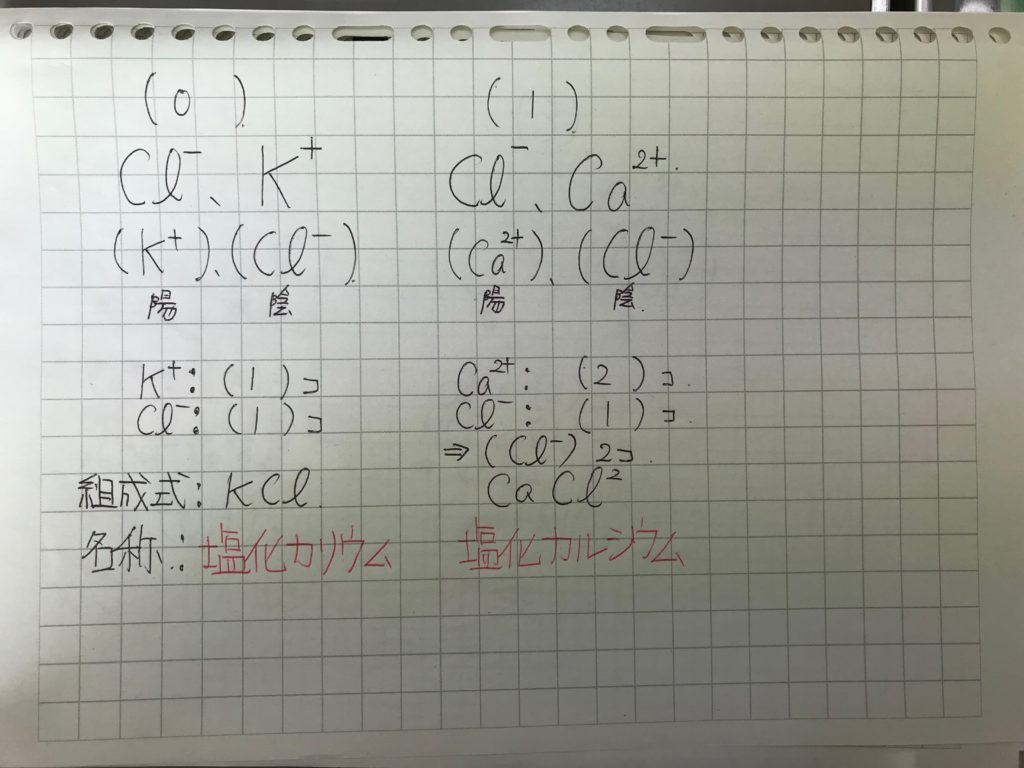 (0) (1)
Cl⁻、K⁺ Cl⁻、Ca²⁺.
(K⁺)、(Cl⁻) (Ca²⁺)、(Cl⁻)
陽 陰 陽 陰.
K⁺: (1)コ Ca²⁺: (2)コ.
Cl⁻: (1)コ Cl⁻: (1)コ.
⇒(Cl⁻)2コ.
組成式: KCl. CaCl²
名称.: 塩化カリウム 塩化カルジウム